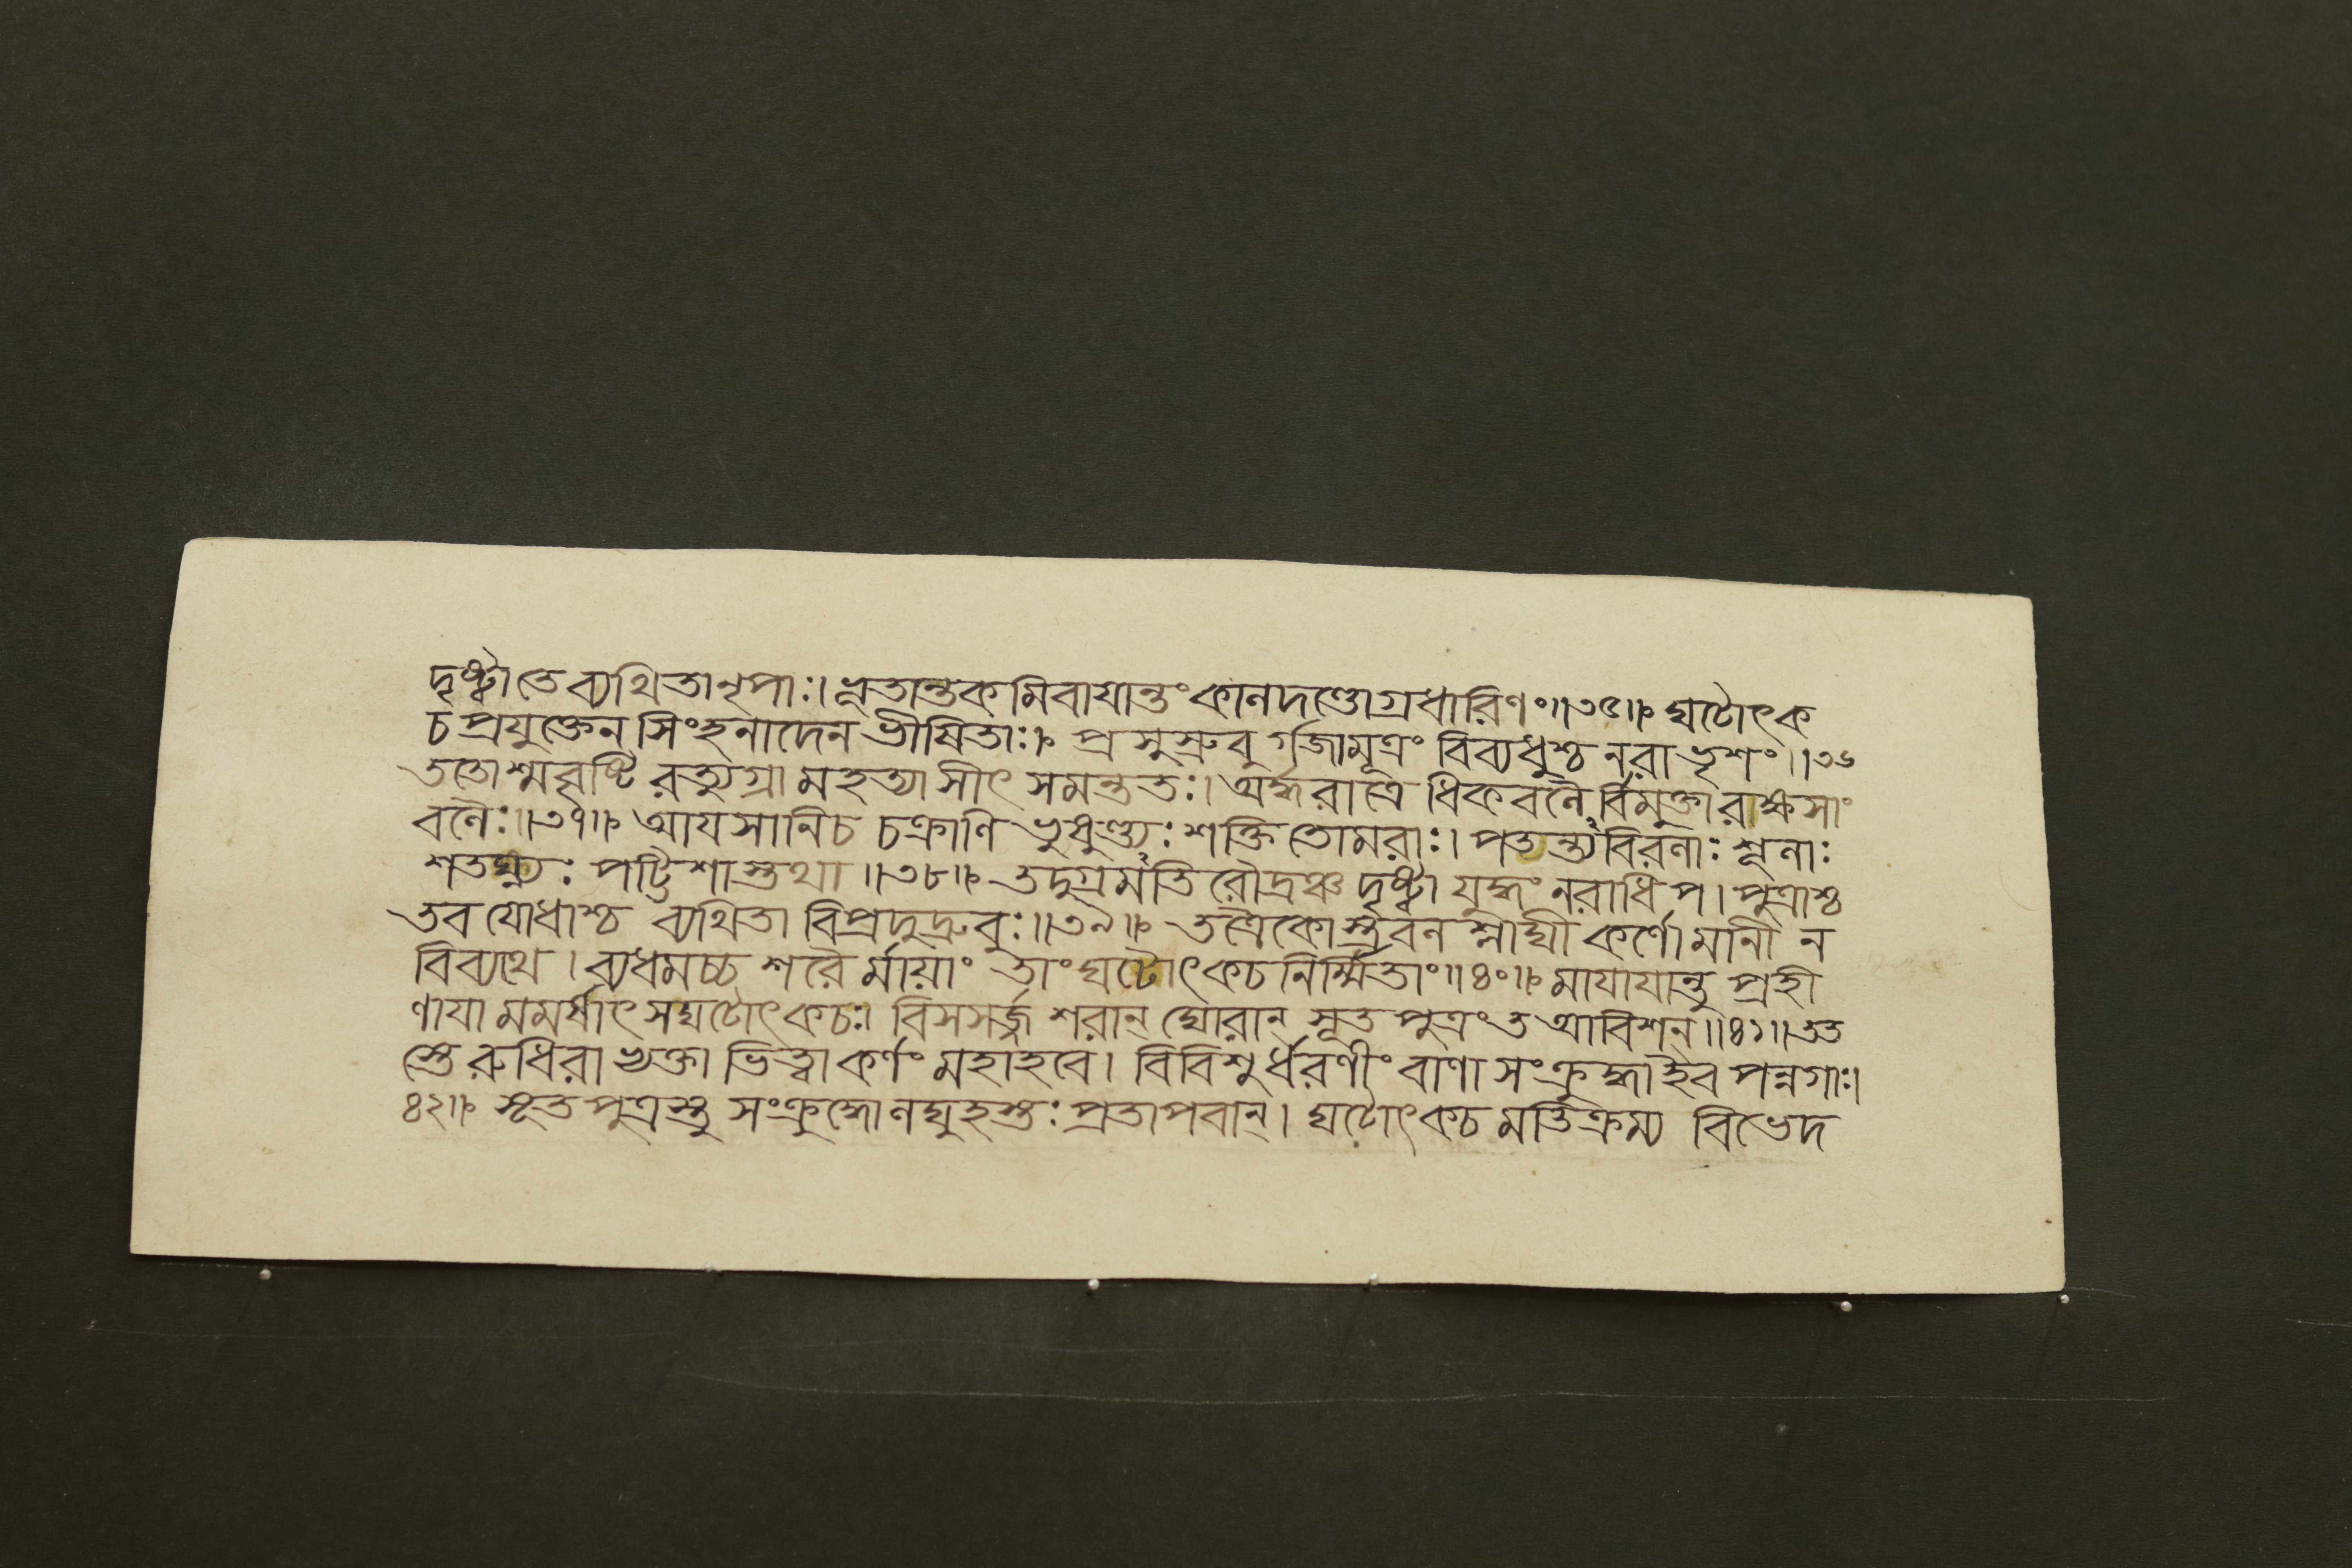 দৃষ্ট্বা তে ব্যথিতা নৃপাঃ। ধ্বতান্তকমিবাযান্তং কালদণ্ডোগ্রধারিণং॥৩৫॥ ঘটোৎক
চপ্রযুক্তেন সিংহনাদেন ভীষিতাঃ। প্রসুস্রুবুর্গজা মূত্রং বিব্যধুশ্চ নরা ভৃশং॥৩৬
ততোশ্মবৃষ্টিরত্যুগ্রা মহত্যাসীৎ সমন্ততঃ। অর্দ্ধরাত্রেধিকবলৈর্বিমুক্তা রাক্ষসাং
বলৈঃ॥৩৭॥ আযসানি চ চক্রাণি ভুষুণ্ড্যঃ শক্তিতোমরাঃ। পতন্ত্যবিরলাঃ শূলাঃ
শতঘ্ন্যঃ পট্টিশাস্তথা॥৩৮॥ তদুগ্রমতিরৌদ্রঞ্চ দৃষ্ট্বা যুদ্ধং নরাধিপ। পুত্রাশ্চ
তব যোধাশ্চ ব্যথিতা বিপ্রদুদ্রুবুঃ॥৩৯॥ তত্রৈকোস্ত্রবলশ্লাঘী কর্ণো মানী ন
বিব্যথে। ব্যধমচ্চ শরৈর্মায়াং তাং ঘটোৎকচনির্ম্মিতাং॥৪০॥ মাযাযান্তু প্রহী
ণাযামমর্ষাৎ স ঘটোৎকচঃ। বিসসর্জ্জ শরান্ ঘোরান্ সূতপুত্রং ত আবিশন্॥৪১॥ তত
স্তে রুধিরাভ্যক্তা ভিত্ত্বা কর্ণং মহাহবে। বিবিশুর্ধরণীং বাণা সংক্রুদ্ধা ইব পন্নগাঃ।
৪২॥ সূতপুত্রস্তু সংক্রুদ্ধো লঘুহস্তঃ প্রতাপবান্। ঘটোৎকচমতিক্রম্য বিভেদ